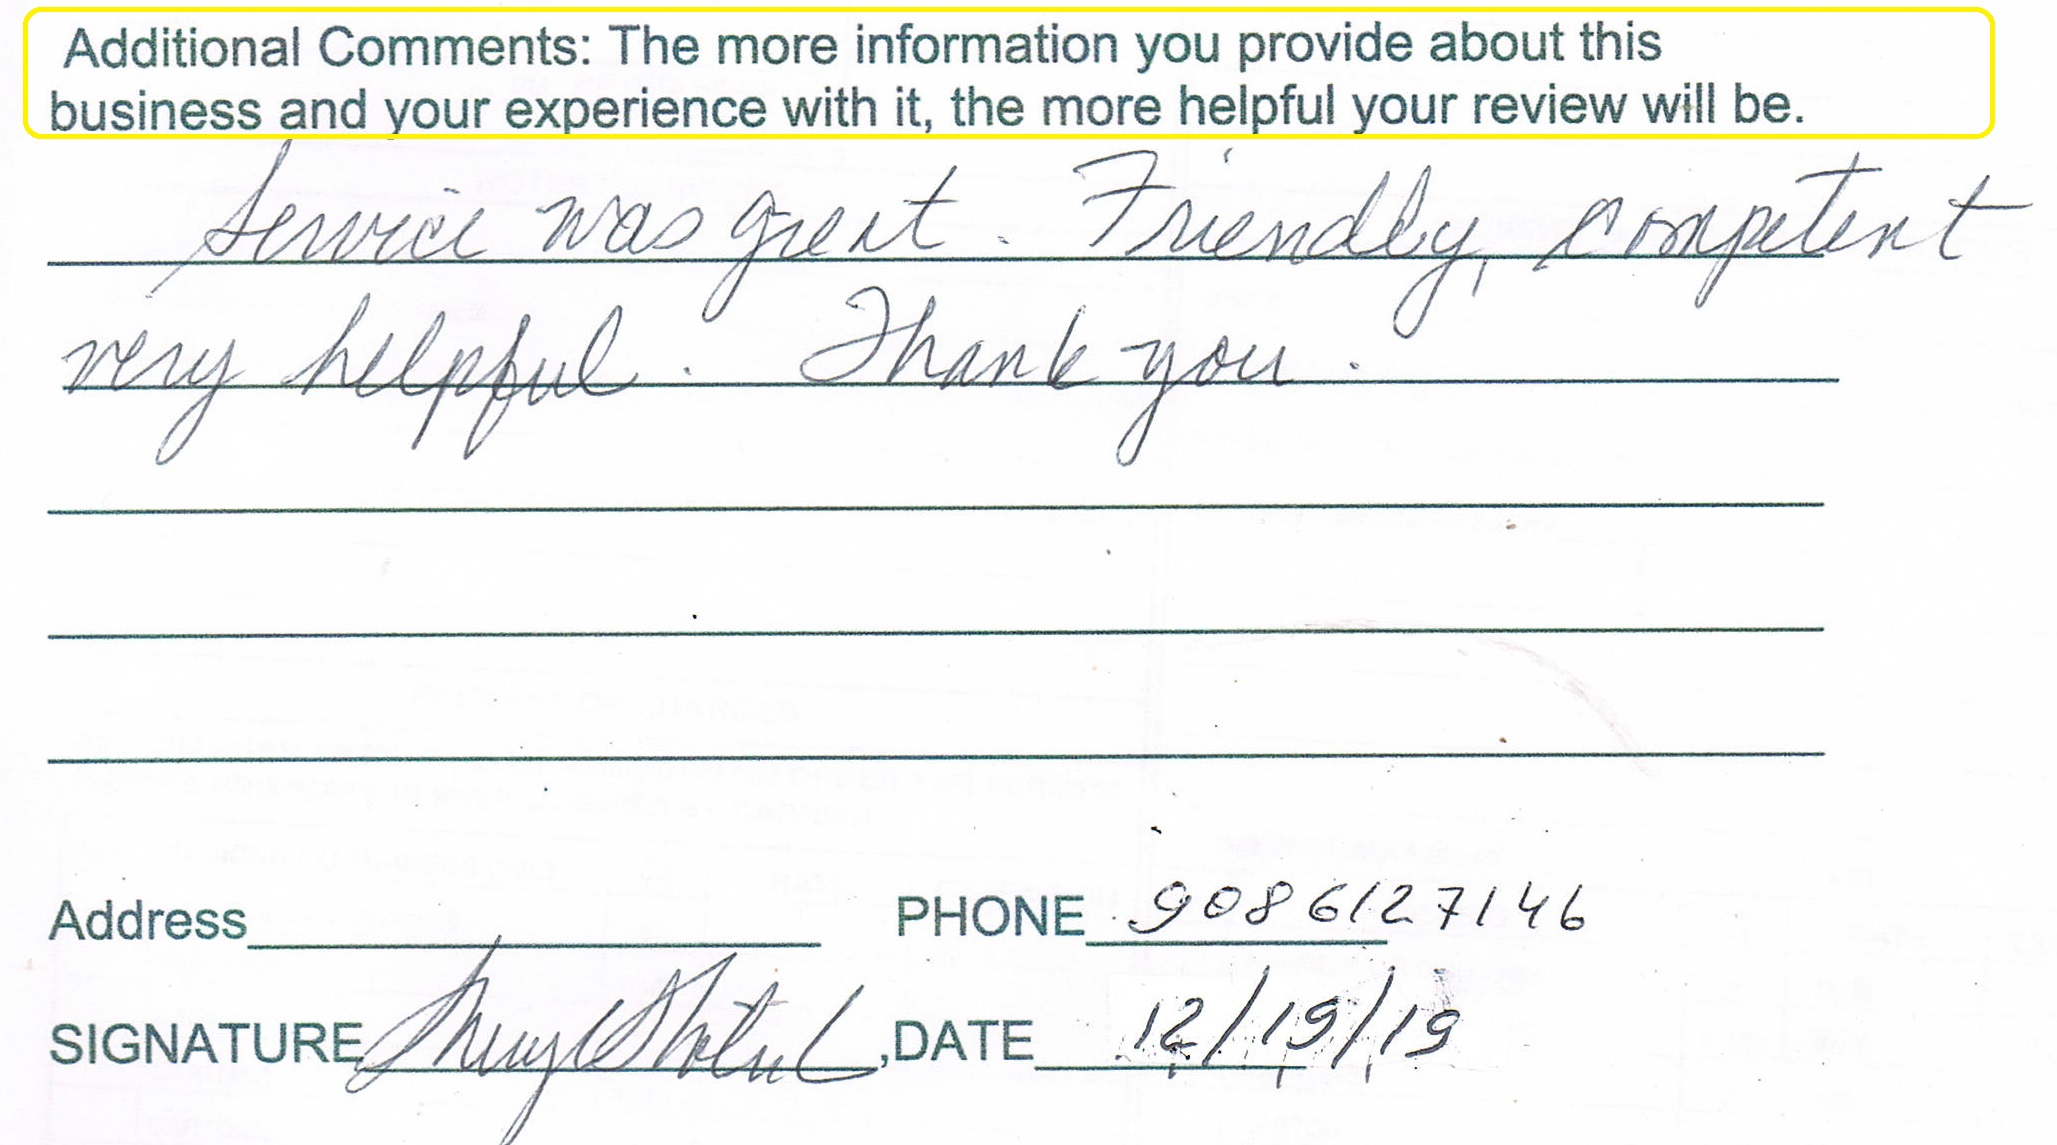 Additional Comments: The more information you provide about this
business and your experience with it, the more helpful your review will be.
Service was great. Friendly, competent
very helpful. Thank you.
Address PHONE 9086127146
SIGNATURE DATE 12/19/19